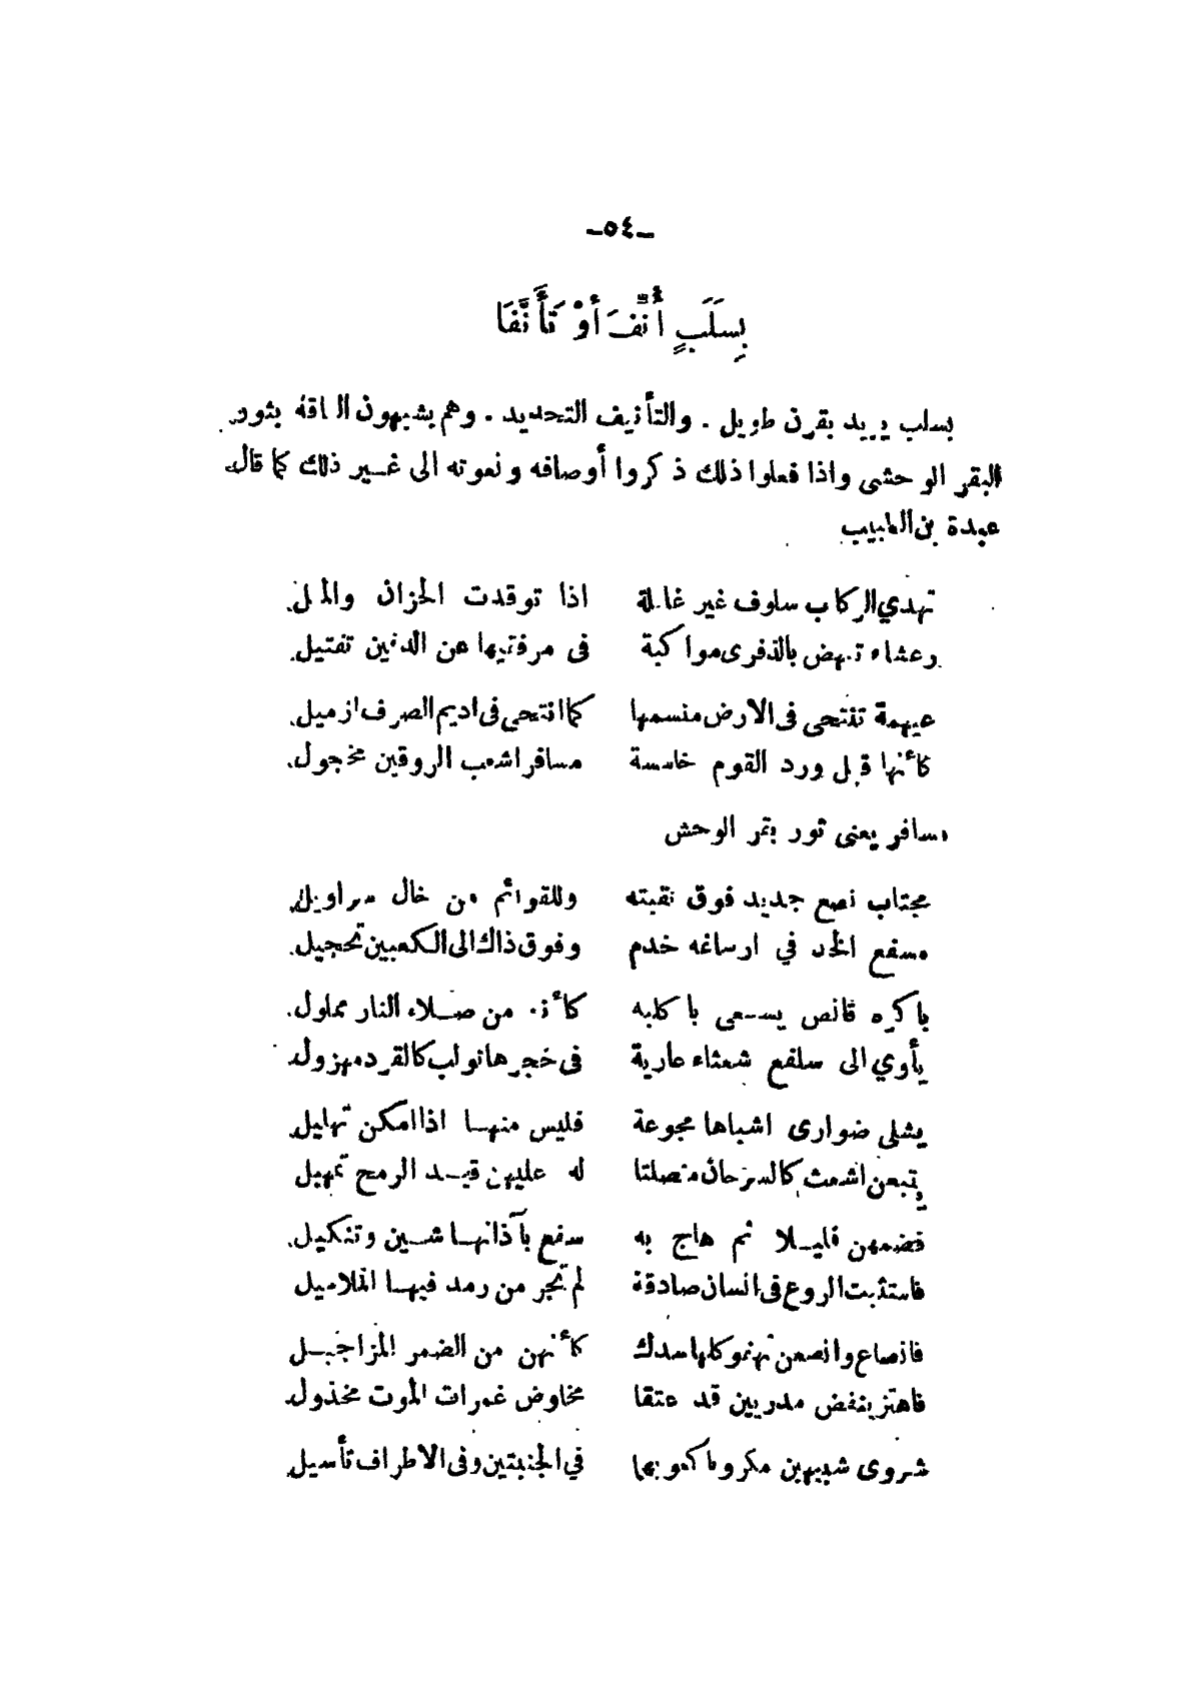 -٥٤-
بِسَلَبٍ أُنِّفَ أَوْ تَأَنَّفَا
بسلب يريد بقرن طويل . والتأنيف التحديد . وهم يشبهون الناقة بثور
البقر الوحشى واذا فعلوا ذلك ذكروا أوصافه ونعوته الى غير ذلك كما قال
عبدة بن الطبيب
تهدي الركاب سلوف غير غافلة اذا توقدت الحزان والميل
رعشاء تنهض بالذفرى مواكبة فى مرفقيها عن الدفين تفتيل
عيهمة تنتحى فى الارض منسمها كما انتحى فى اديم الصرف ازميل
كأنها قبل ورد القوم خامسة مسافر اشعب الروقين مخجول
مسافر يعنى ثور بقر الوحش
مجتاب نصع جديد فوق نقبته وللقوائم من خال سراويل
مسفع الخد في ارساغه خدم وفوق ذاك الى الكعبين تحجيل
باكره قانص يسعى باكلبه كأنه من صلاء النار مملول
يأوي الى سلفع شعثاء عارية فى حجرها تولب كالقرد مهزول
يشلى ضوارى اشباها مجوعة فليس منها اذا امكن تهليل
يتبعن اشعث كالسرحان منصلتا له عليهن قيد الرمح تمهيل
فضمهن قليلا ثم هاج به سفع بآذانها شين وتنكيل
فاستثبت الروع فى انسان صادقة لم تجر من رمد فيها الملاميل
فانصاع وانصعن تهفو كلها سدك كأنهن من الضمر المزاجيل
فاهتز ينفض مدريين قد عتقا مخاوض غمرات الموت مخذول
شروى شبيهين مكروبا كعوبها في الجنبتين وفى الاطراف تأسيل